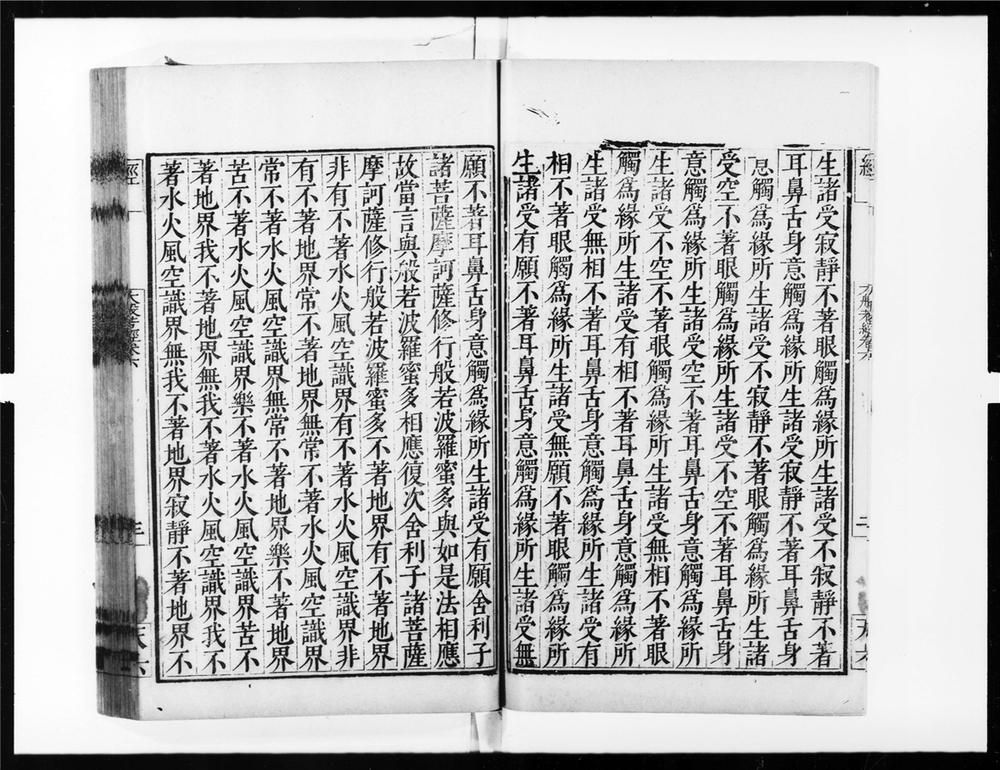 生諸受寂靜不著眼觸爲緣所生諸受不寂靜不著
耳鼻舌身意觸爲緣所生諸受寂靜不著耳鼻舌身
意觸爲緣所生諸受不寂靜不著眼觸爲緣所生諸
受空不著眼觸爲緣所生諸受不空不著耳鼻舌身
意觸爲緣所生諸受空不著耳鼻舌身意觸爲緣所
生諸受不空不著眼觸爲緣所生諸受無相不著眼
觸爲緣所生諸受有相不著耳鼻舌身意觸爲緣所
生諸受無相不著耳鼻舌身意觸爲緣所生諸受有
相不著眼觸爲緣所生諸受無願不著眼觸爲緣所
生諸受有願不著耳鼻舌身意觸爲緣所生諸受無
願不著耳鼻舌身意觸爲緣所生諸受有願舍利子
諸菩薩摩訶薩修行般若波羅蜜多與如是法相應
故當言與般若波羅蜜多相應復次舍利子諸菩薩
摩訶薩修行般若波羅蜜多不著地界有不著地界
非有不著水火風空識界有不著水火風空識界非
有不著地界常不著地界無常不著水火風空識界
常不著水火風空識界無常不著地界樂不著地界
苦不著水火風空識界樂不著水火風空識界苦不
著地界我不著地界無我不著水火風空識界我不
著水火風空識界無我不著地界寂靜不著地界不
經
三